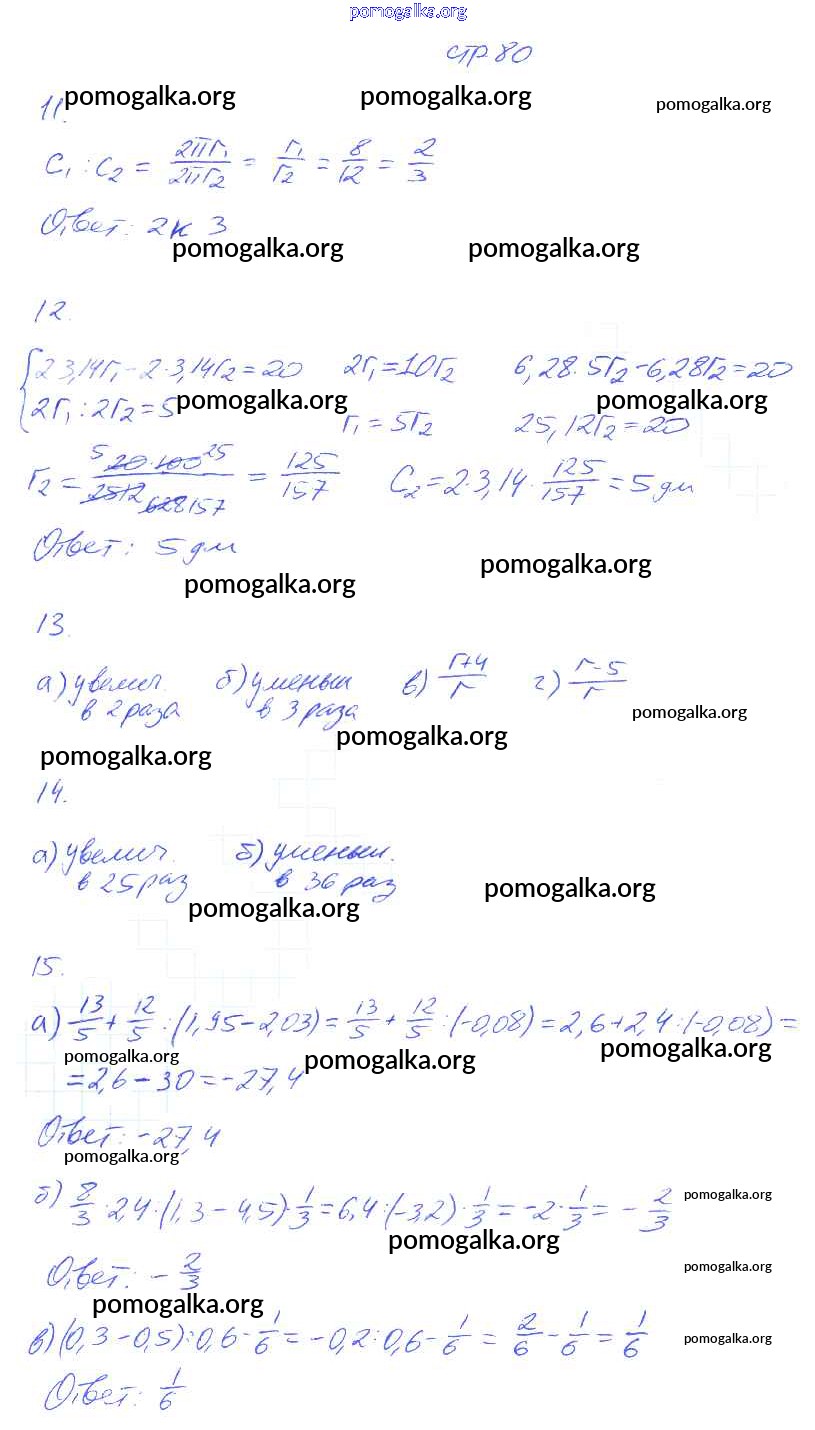 pomogalka.org
стр 80
pomogalka.org pomogalka.org pomogalka.org
11.
C₁ : C₂ = 2πr₁/2πr₂ = r₁/r₂ = 8/12 = 2/3
Ответ: 2 к 3
pomogalka.org pomogalka.org
12.
{2·3,14r₁ - 2·3,14r₂ = 20 2r₁ = 10r₂ 6,28·5r₂ - 6,28r₂ = 20
2r₁ : 2r₂ = 5 pomogalka.org r₁ = 5r₂ pomogalka.org 25,12r₂ = 20
r₂ = 5 20·100 25/2512 628 157 = 125/157 C₂ = 2·3,14·125/157 = 5 дм
Ответ: 5 дм
pomogalka.org pomogalka.org
13.
а) увелич. б) уменьш в) r+4/r г) r-5/r
в 2 раза в 3 раза pomogalka.org
pomogalka.org pomogalka.org
14.
а) увелич. б) уменьш.
в 25 раз в 36 раз pomogalka.org
pomogalka.org
15.
а) 13/5 + 12/5 : (1,95 - 2,03) = 13/5 + 12/5 : (-0,08) = 2,6 + 2,4 : (-0,08) =
pomogalka.org pomogalka.org pomogalka.org
= 2,6 - 30 = -27,4
Ответ: -27,4
pomogalka.org
б) 8/3 · 2,4 : (1,3 - 4,5) · 1/3 = 6,4 : (-3,2) · 1/3 = -2 · 1/3 = -2/3 pomogalka.org
pomogalka.org
Ответ: -2/3 pomogalka.org
pomogalka.org
в) (0,3 - 0,5) : 0,6 - 1/6 = -0,2 : 0,6 - 1/6 = 2/6 - 1/6 = 1/6 pomogalka.org
Ответ: 1/6